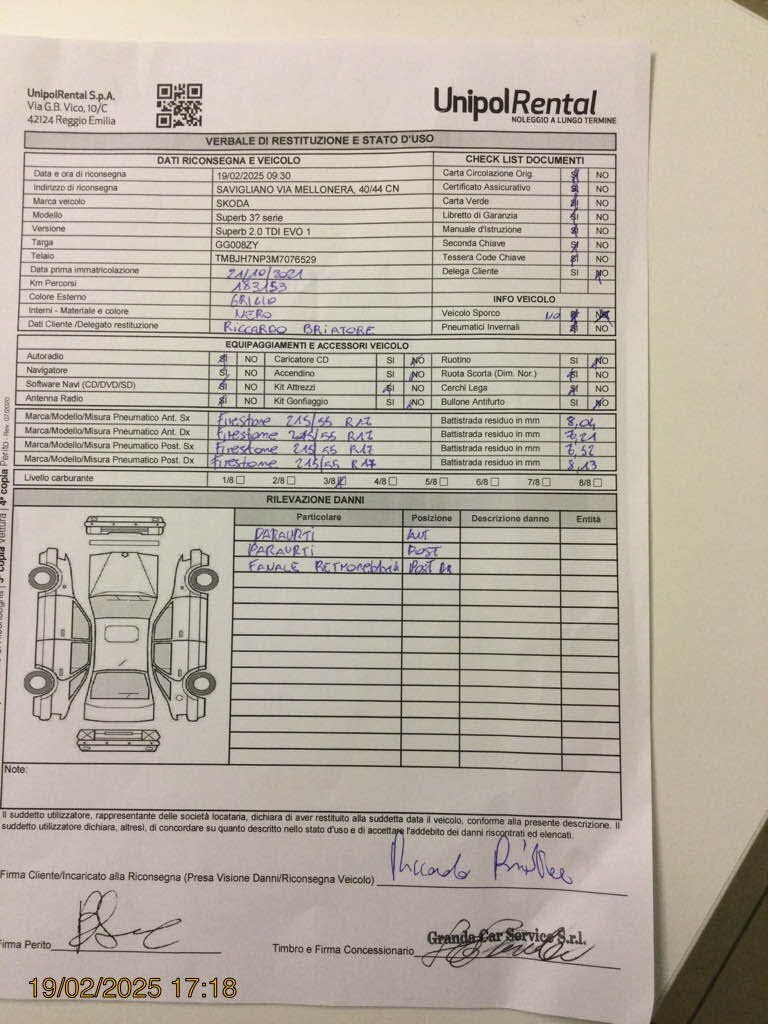 UnipolRental S.p.A.
Via G.B. Vico, 10/C
42124 Reggio Emilia
UnipolRental
NOLEGGIO A LUNGO TERMINE
VERBALE DI RESTITUZIONE E STATO D'USO
DATI RICONSEGNA E VEICOLO
Data e ora di riconsegna 19/02/2025 09:30
Indirizzo di riconsegna SAVIGLIANO VIA MELLONERA, 40/44 CN
Marca veicolo SKODA
Modello Superb 3? serie
Versione Superb 2.0 TDI EVO 1
Targa GG008ZY
Telaio TMBJH7NP3M7076529
Data prima immatricolazione 21/10/2021
Km Percorsi 183153
Colore Esterno GRIGIO
Interni - Materiale e colore NERO
Dati Cliente /Delegato restituzione RICCARDO BRIATORE
CHECK LIST DOCUMENTI
Carta Circolazione Orig. SI NO
Certificato Assicurativo SI NO
Carta Verde SI NO
Libretto di Garanzia SI NO
Manuale d'Istruzione SI NO
Seconda Chiave SI NO
Tessera Code Chiave SI NO
Delega Cliente SI NO
INFO VEICOLO
Veicolo Sporco NO SI NO
Pneumatici Invernali SI NO
EQUIPAGGIAMENTI E ACCESSORI VEICOLO
Autoradio SI NO Caricatore CD SI NO Ruotino SI NO
Navigatore SI NO Accendino SI NO Ruota Scorta (Dim. Nor.) SI NO
Software Navi (CD/DVD/SD) SI NO Kit Attrezzi SI NO Cerchi Lega SI NO
Antenna Radio SI NO Kit Gonfiaggio SI NO Bullone Antifurto SI NO
Marca/Modello/Misura Pneumatico Ant. Sx Firestone 215/55 R17 Battistrada residuo in mm 8,04
Marca/Modello/Misura Pneumatico Ant. Dx Firestone 215/55 R17 Battistrada residuo in mm 7,21
Marca/Modello/Misura Pneumatico Post. Sx Firestone 215/55 R17 Battistrada residuo in mm 7,52
Marca/Modello/Misura Pneumatico Post. Dx Firestone 215/55 R17 Battistrada residuo in mm 8,13
Livello carburante 1/8 2/8 3/8 4/8 5/8 6/8 7/8 8/8
RILEVAZIONE DANNI
Particolare Posizione Descrizione danno Entità
PARAURTI ANT
PARAURTI POST
FANALE Post Dx
Note:
Il suddetto utilizzatore, rappresentante delle società locataria, dichiara di aver restituito alla suddetta data il veicolo, conforme alla presente descrizione. Il
suddetto utilizzatore dichiara, altresì, di concordare su quanto descritto nello stato d'uso e di accettare l'addebito dei danni riscontrati ed elencati.
Firma Cliente/Incaricato alla Riconsegna (Presa Visione Danni/Riconsegna Veicolo) Riccardo
Firma Perito
Timbro e Firma Concessionario Granda Car Service S.r.l.
19/02/2025 17:18